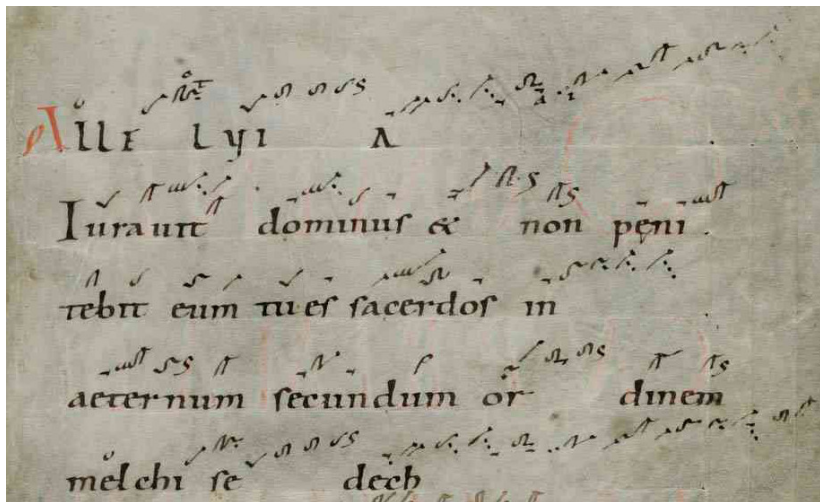 ALLE LYI A
Iurauit dominus & non pęni
tebit eum tu es sacerdos in
aeternum secundum or dinem
melchi se dech